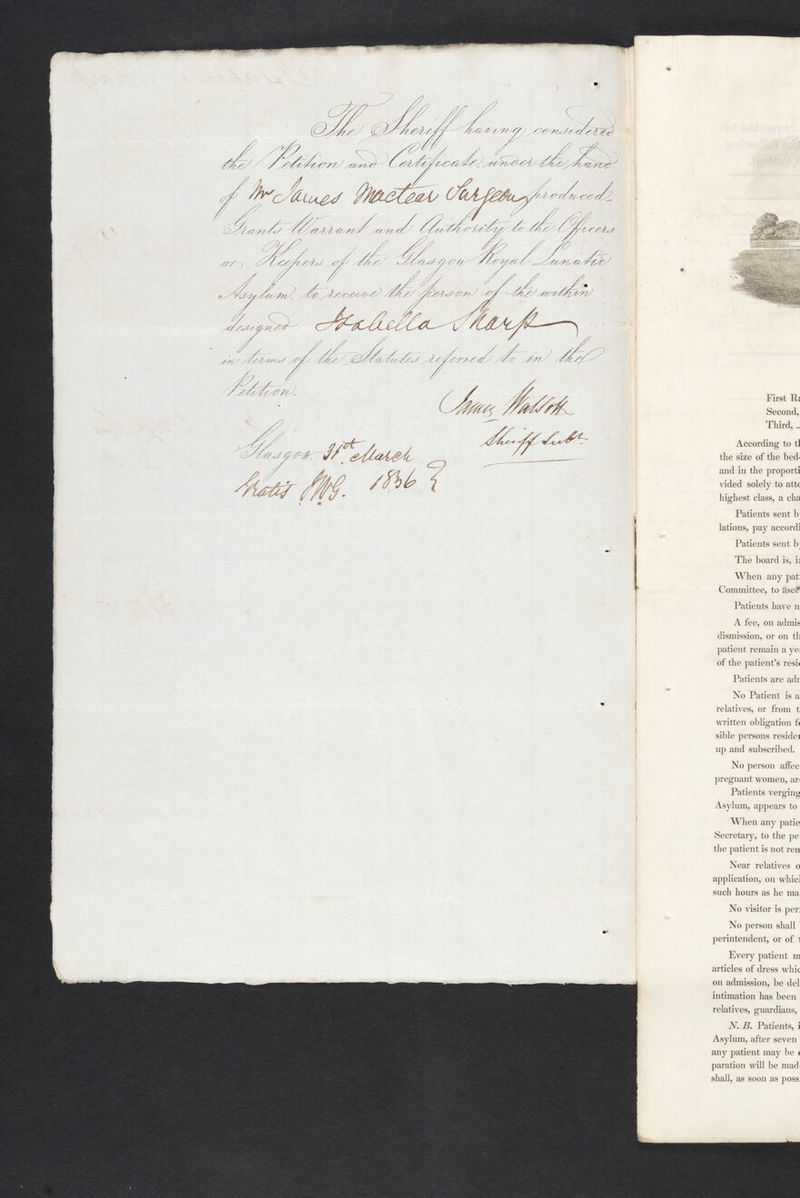 The Sheriff having considered
the Petition and Certificate, under the hand
of Mr James Mactear Surgeon produced
Grants Warrant and Authority to the Officers
or Keepers of the Glasgow Royal Lunatic
Asylum to receive the person of the within
designed Isabella Sharp
in terms of the Statutes referred to in the
Petition.
James Watson
Sheriff Subt
Glasgow 31st March
Gratis 1836
First Ra
Second,
Third,
According to th
the size of the bed-
and in the proporti
vided solely to atte
highest class, a cha
Patients sent b
lations, pay accordi
Patients sent b
The board is, i
When any pat
Committee, to asce
Patients have n
A fee, on admis
dismission, or on th
patient remain a ye
of the patient's resi
Patients are adm
No Patient is a
relatives, or from t
written obligation f
sible persons reside
up and subscribed.
No person affec
pregnant women, ar
Patients verging
Asylum, appears to
When any patie
Secretary, to the pe
the patient is not rem
Near relatives o
application, on which
such hours as he ma
No visitor is per
No person shall
perintendent, or of
Every patient m
articles of dress whic
on admission, be del
intimation has been
relatives, guardians,
N. B. Patients, i
Asylum, after seven
any patient may be
paration will be mad
shall, as soon as poss